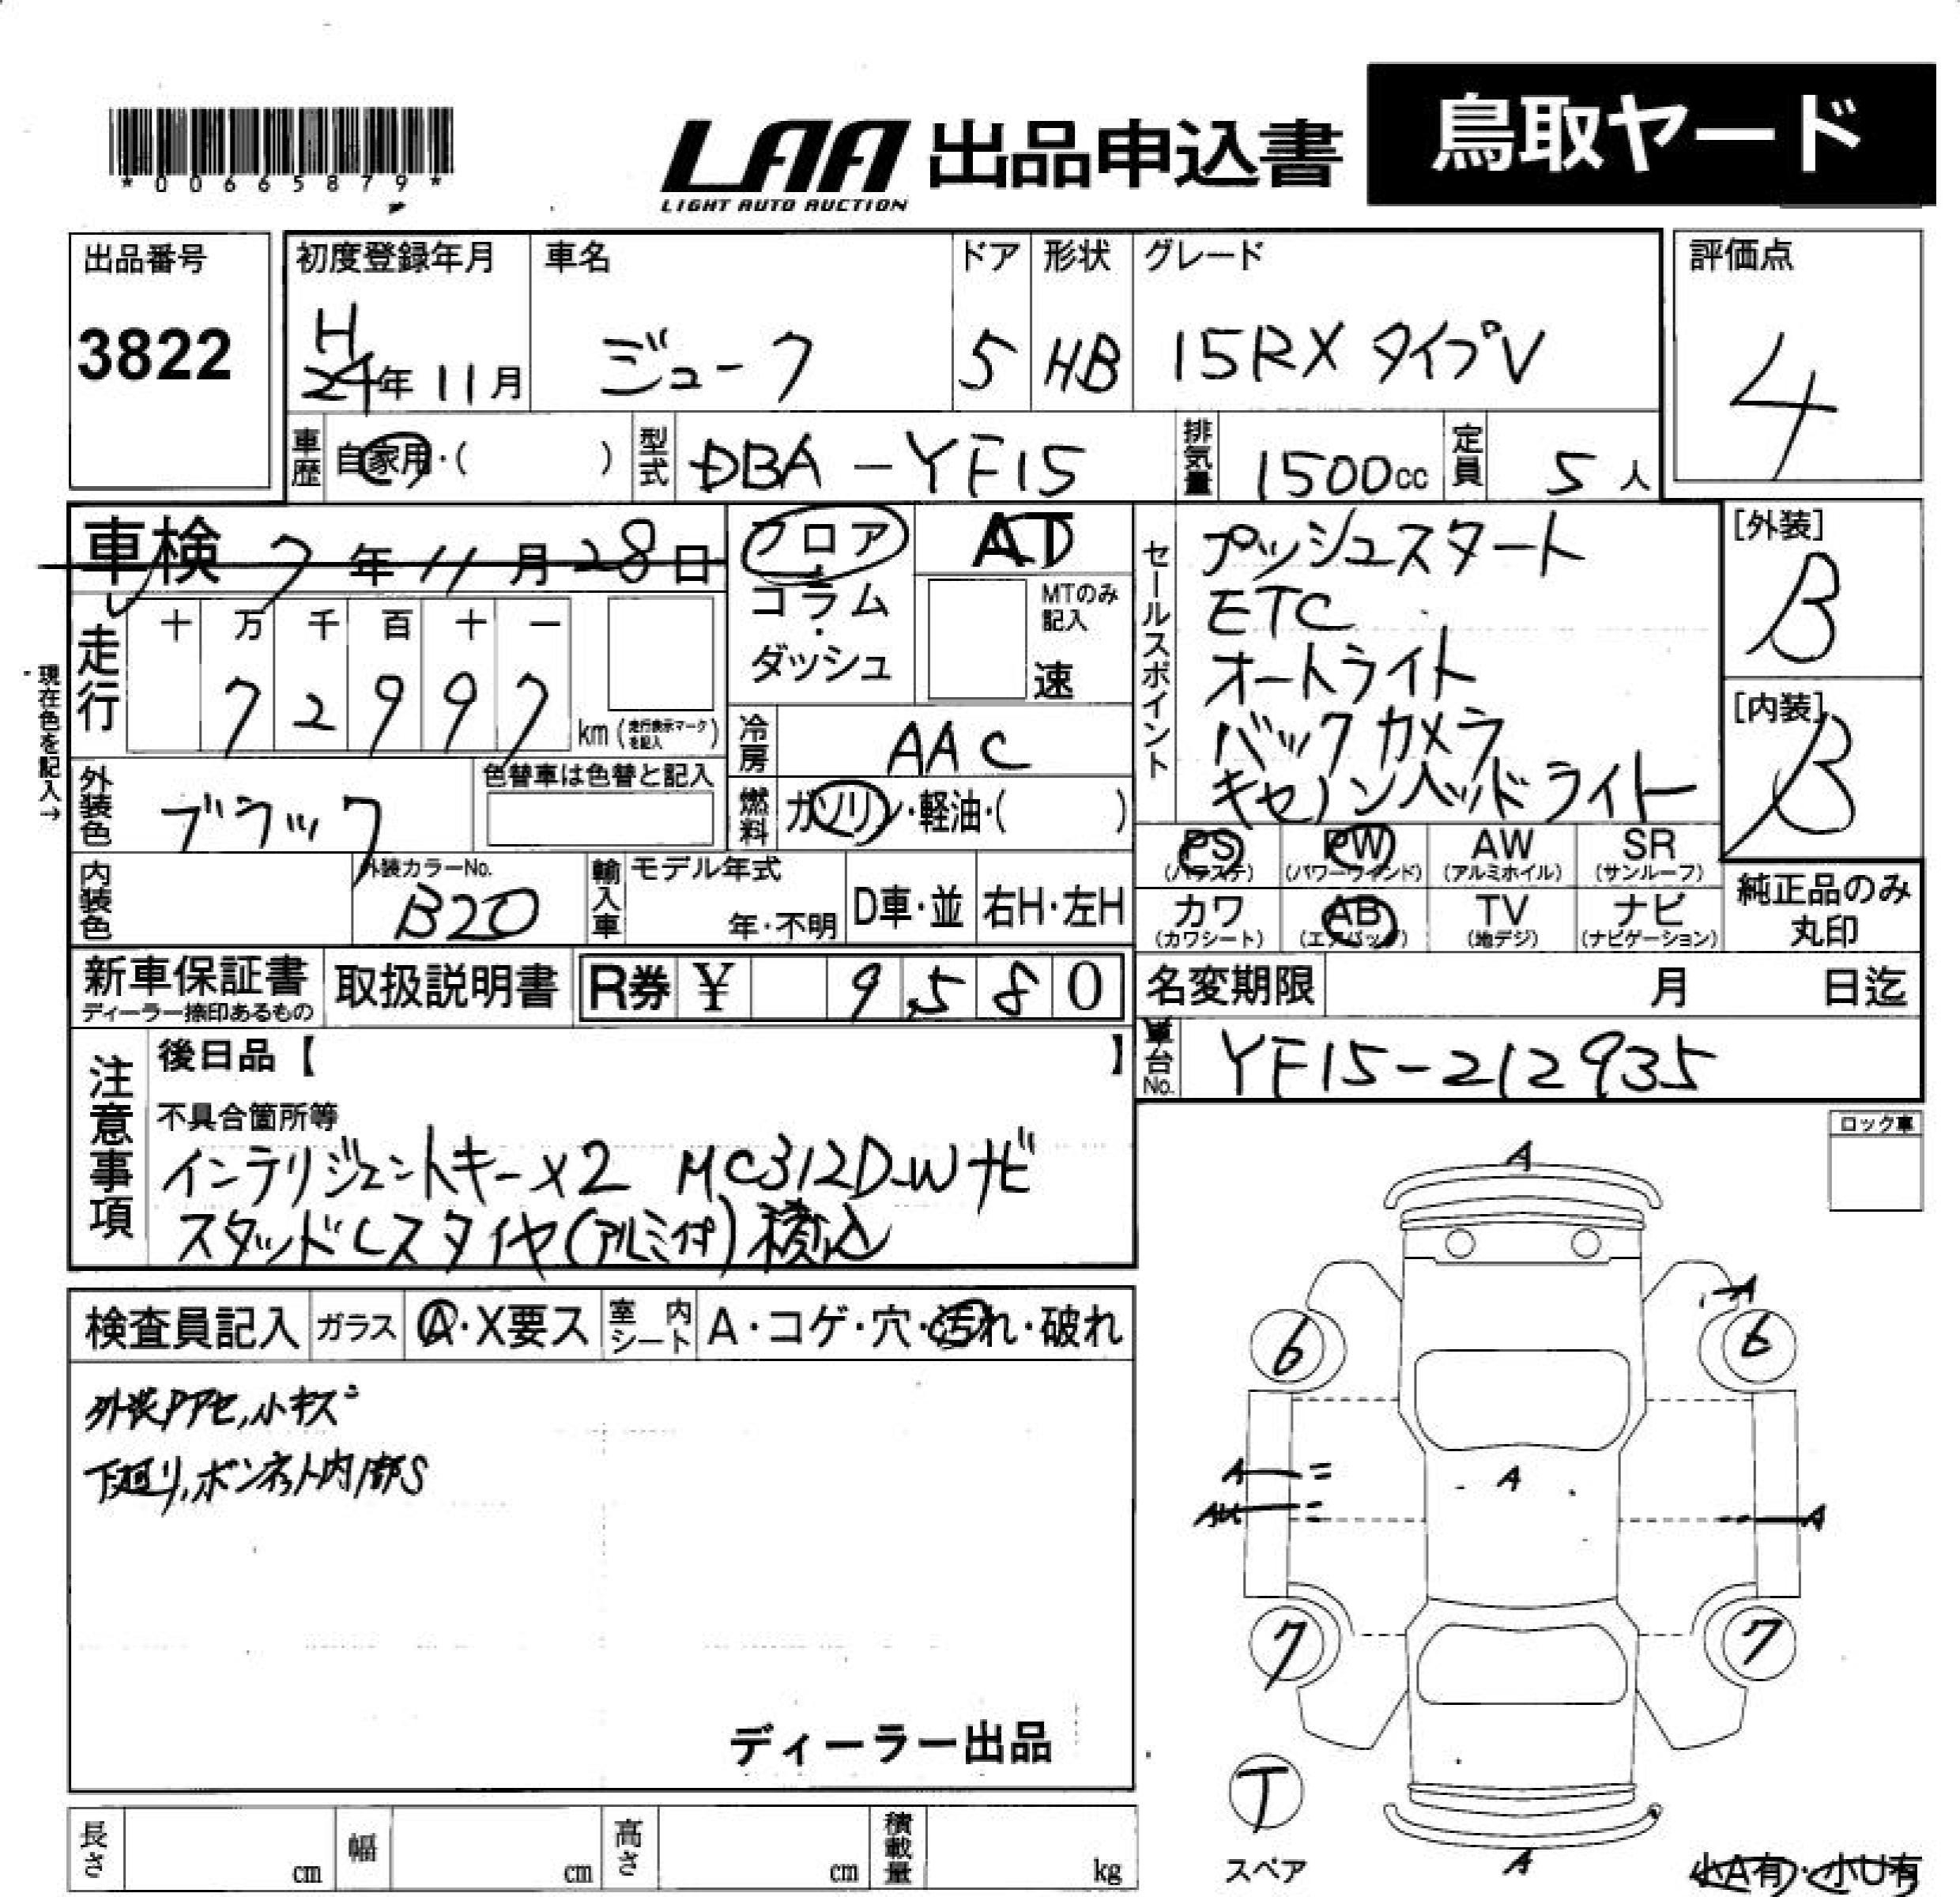 *00665879*
LAA 出品申込書 鳥取ヤード
LIGHT AUTO AUCTION
出品番号
3822
初度登録年月
H
24年11月
車名
ジューク
ドア
5
形状
HB
グレード
15RX タイプV
評価点
4
車歴 自家用・( )
型式 DBA-YF15
排気量 1500cc
定員 5人
車検 7年11月28日
走行
十 万 千 百 十 一
7 2 9 9 7
km(走行表示マークを記入)
現在色を記入→
フロア
・
コラム
・
ダッシュ
AT
MTのみ
記入
速
冷房 AAC
燃料 ガソリン・軽油・( )
外装色 ブラック
色替車は色替と記入
内装色
外装カラーNo.
B20
輸入車 モデル年式
年・不明
D車・並
右H・左H
セールスポイント
プッシュスタート
ETC
オートライト
バックカメラ
キセノンヘッドライト
[外装]
B
[内装]
B
PS PW AW SR
(パワステ) (パワーウィンド) (アルミホイル) (サンルーフ)
カワ AB TV ナビ
(カワシート) (エアバッグ) (地デジ) (ナビゲーション)
純正品のみ
丸印
新車保証書
ディーラー捺印あるもの
取扱説明書
R券 ¥ 9 5 8 0
名変期限 月 日迄
車台No. YF15-212935
注意事項
後日品【 】
不具合箇所等
インテリジェントキー×2 MC312D-Wナビ
スタッドレスタイヤ(アルミ付)積込
ロック車
検査員記入 ガラス A・X要ス 室内シート A・コゲ・穴・汚れ・破れ
外装Pアセ,小キズ
下廻り,ボンネット内部S
ディーラー出品
A
A
6 6
A
A
AU
A
7 7
T
スペア
A
小A有・小U有
長さ cm 幅 cm 高さ cm 積載量 kg